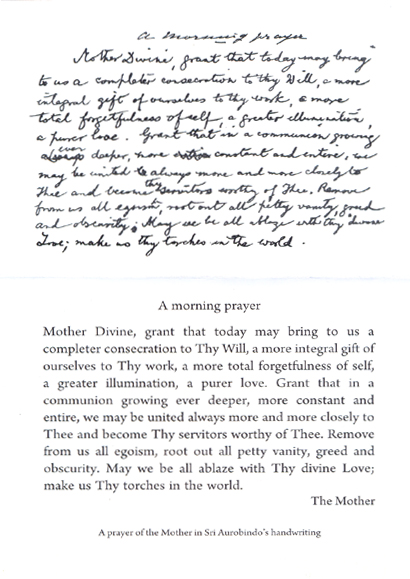 A morning prayer
Mother Divine, grant that today may bring
to us a completer consecration to thy Will, a more
integral gift of ourselves to thy work, a more
total forgetfulness of self, a greater illumination,
a purer love. Grant that in a communion growing
ever deeper, more constant and entire, we
may be united always more and more closely to
Thee and become thy servitors worthy of Thee. Remove
from us all egoism, root out all petty vanity, greed
and obscurity. May we be all ablaze with thy divine
Love; make us thy torches in the world.
A morning prayer
Mother Divine, grant that today may bring to us a
completer consecration to Thy Will, a more integral gift of
ourselves to Thy work, a more total forgetfulness of self,
a greater illumination, a purer love. Grant that in a
communion growing ever deeper, more constant and
entire, we may be united always more and more closely to
Thee and become Thy servitors worthy of Thee. Remove
from us all egoism, root out all petty vanity, greed and
obscurity. May we be all ablaze with Thy divine Love;
make us Thy torches in the world.
The Mother
A prayer of the Mother in Sri Aurobindo's handwriting